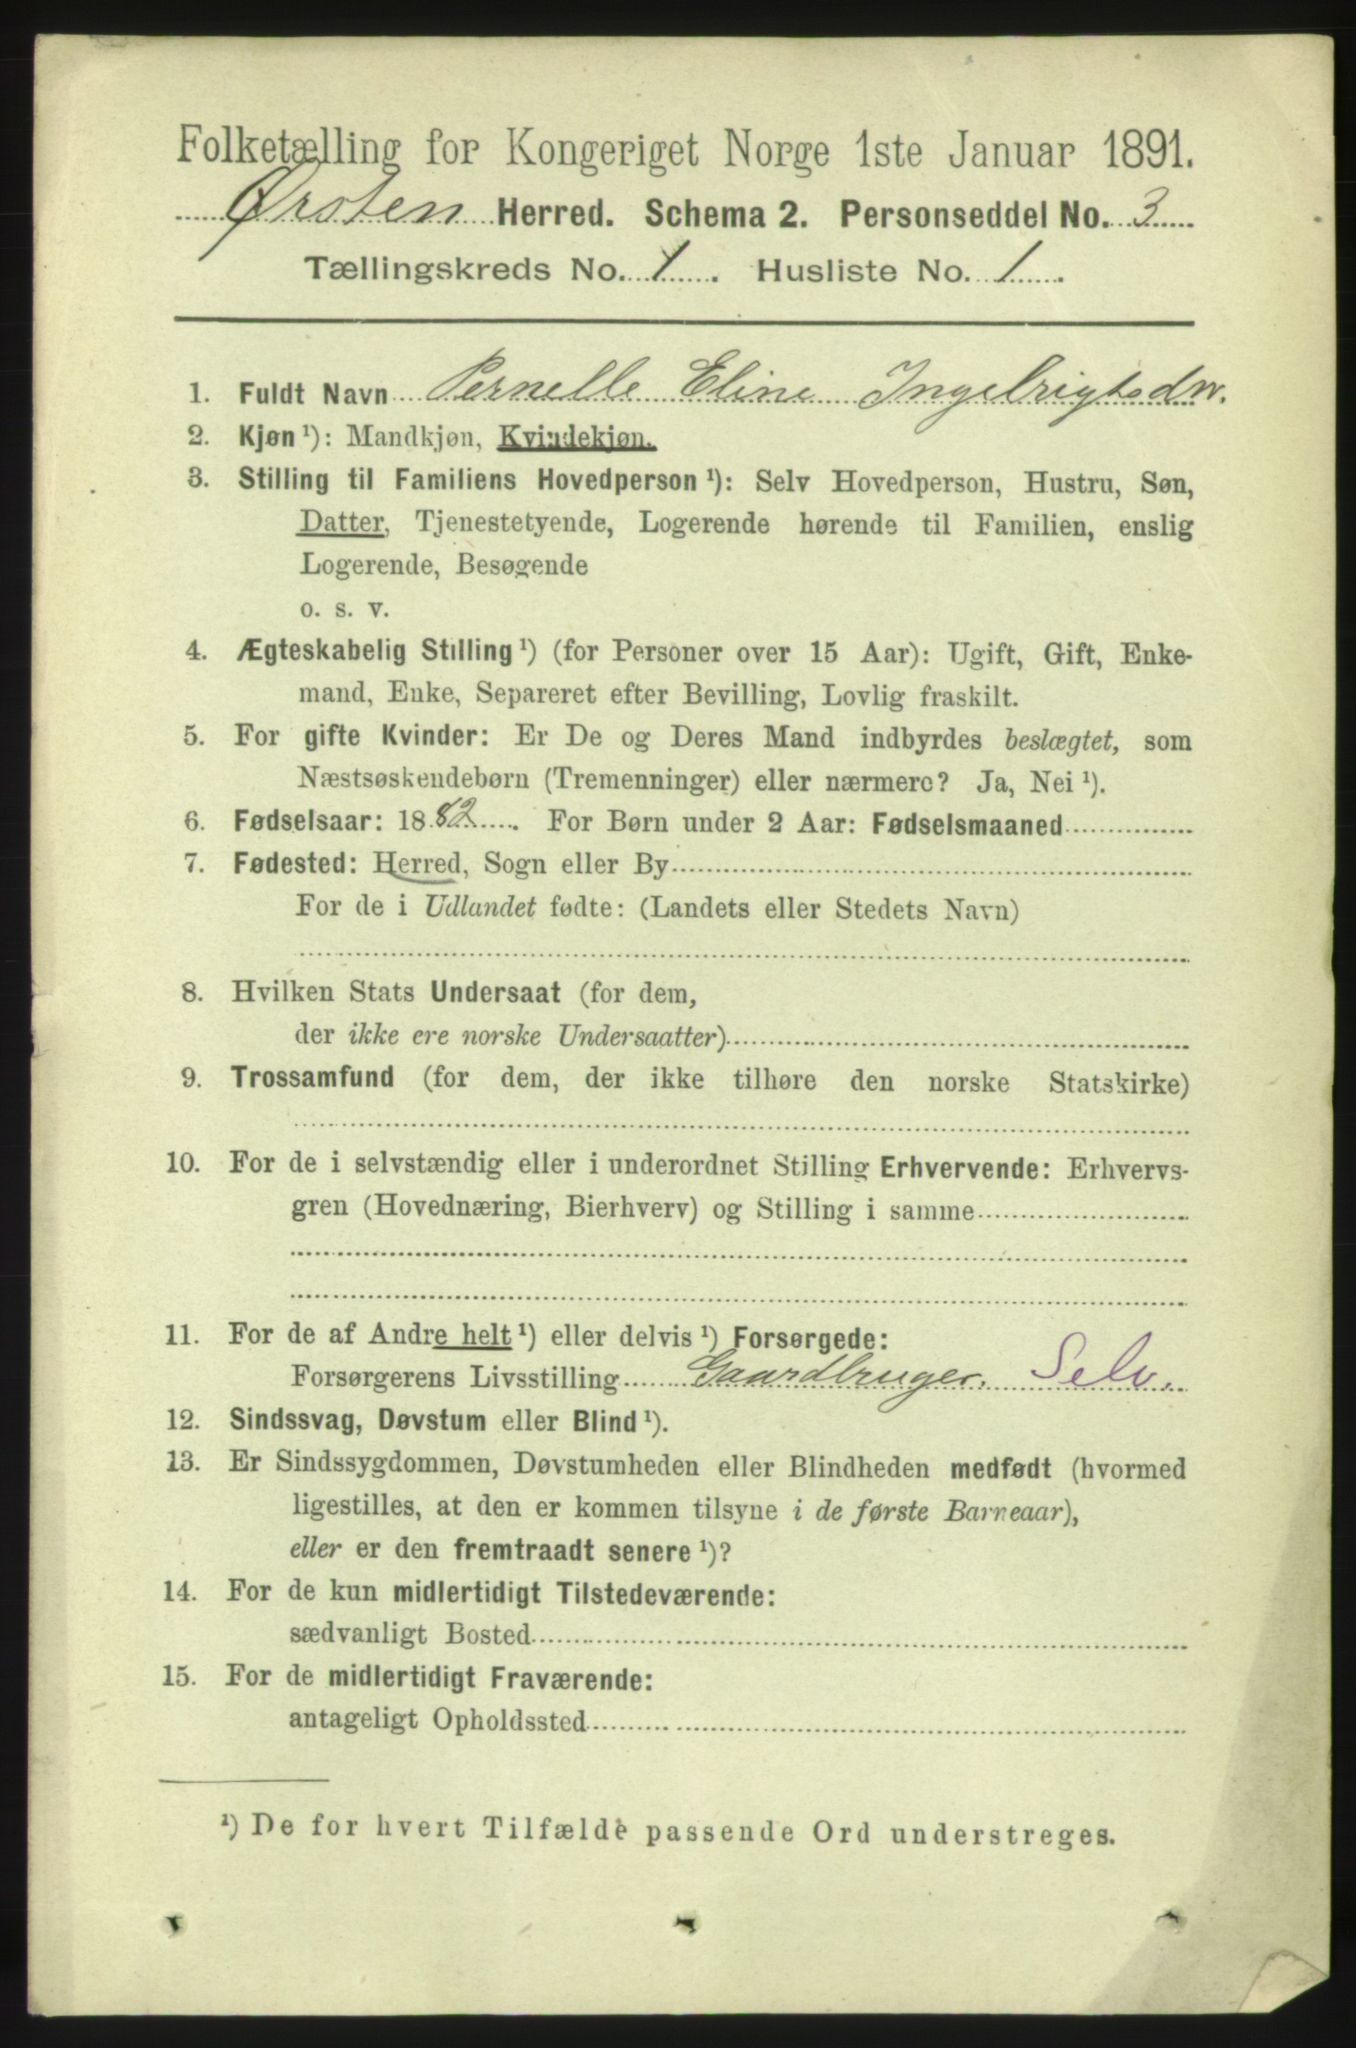 Folketælling for Kongeriget Norge 1ste Januar 1891.
Ørsten Herred. Schema 2. Personseddel No. 3
Tællingskreds No. 1. Husliste No. 1.
1. Fuldt Navn Pernelle Eline Ingebrigtsdtr.
2. Kjøn ¹): Mandkjøn, Kvindekjøn.
3. Stilling til Familiens Hovedperson ¹): Selv Hovedperson, Hustru, Søn,
Datter, Tjenestetyende, Logerende hørende til Familien, enslig
Logerende, Besøgende
o. s. v.
4. Ægteskabelig Stilling ¹) (for Personer over 15 Aar): Ugift, Gift, Enke-
mand, Enke, Separeret efter Bevilling, Lovlig fraskilt.
5. For gifte Kvinder: Er De og Deres Mand indbyrdes beslægtet, som
Næstsøskendebørn (Tremenninger) eller nærmere? Ja, Nei ¹).
6. Fødselsaar: 1882. For Børn under 2 Aar: Fødselsmaaned
7. Fødested: Herred, Sogn eller By
For de i Udlandet fødte: (Landets eller Stedets Navn)
8. Hvilken Stats Undersaat (for dem,
der ikke ere norske Undersaatter)
9. Trossamfund (for dem, der ikke tilhøre den norske Statskirke)
10. For de i selvstændig eller i underordnet Stilling Erhvervende: Erhvervs-
gren (Hovednæring, Bierhverv) og Stilling i samme
11. For de af Andre helt ¹) eller delvis ¹) Forsørgede:
Forsørgerens Livsstilling Gaardbruger. Selv.
12. Sindssvag, Døvstum eller Blind ¹).
13. Er Sindssygdommen, Døvstumheden eller Blindheden medfødt (hvormed
ligestilles, at den er kommen tilsyne i de første Barneaar),
eller er den fremtraadt senere ¹)?
14. For de kun midlertidigt Tilstedeværende:
sædvanligt Bosted
15. For de midlertidigt Fraværende:
antageligt Opholdssted
¹) De for hvert Tilfælde passende Ord understreges.